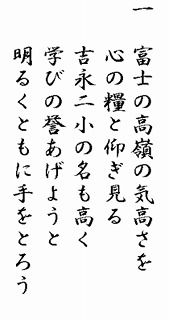 一
富士の高嶺の気高さを
心の糧と仰ぎ見る
吉永二小の名も高く
学びの誉あげようと
明るくともに手をとろう